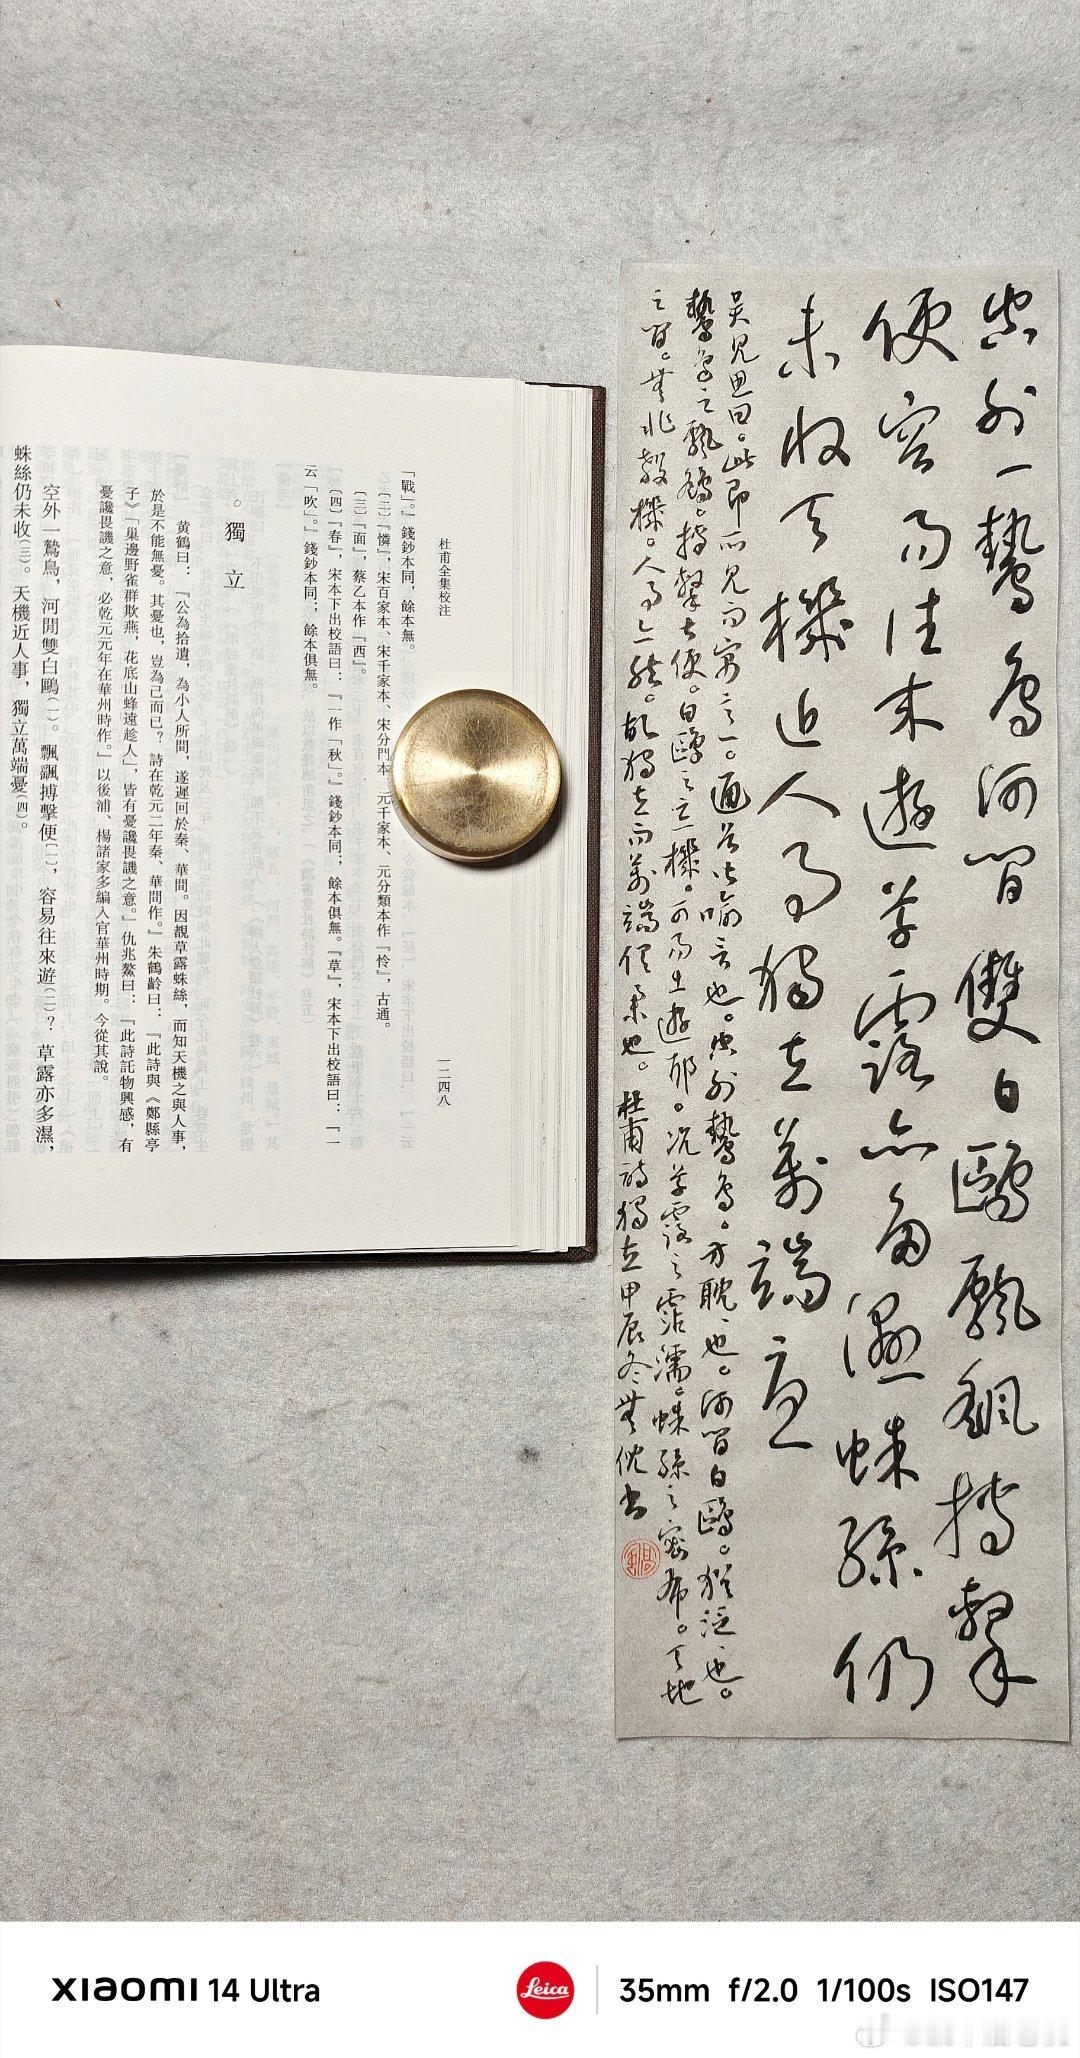 空外一鷙鳥河間雙白鷗飄飖搏擊
便容易往來遊草露亦多濕蛛絲仍
未收天機近人事獨立萬端憂
吳見思曰。此即所見而寓之。通首比喻言也。空外鷙鳥。方眈眈也。河間白鷗。猶泛泛也。
鷙鳥之飄飖。搏擊甚便。白鷗之忘機。可易往遊耶。況草露之霑濡。蛛絲之密布。天地
之間。無非殺機。人事亦然。故獨立而萬端俱集也。杜甫詩獨立甲辰冬無倪書
杜甫全集校注 一二四八
「戰」。』錢鈔本同，餘本無。
〔二〕『憐』，宋百家本、宋千家本、宋分門本、元千家本、元分類本作『怜』，古通。
〔三〕『面』，蔡乙本作『西』。
〔四〕『春』，宋本下出校語曰：『一作「秋」。』錢鈔本同；餘本俱無。『草』，宋本下出校語曰：『一
云「吹」。』錢鈔本同；餘本俱無。
獨立
黃鶴曰：『公為拾遺，為小人所間，遂遲回於秦、華間。因覩草露蛛絲，而知天機之與人事，
於是不能無憂。其憂也，豈為己而已？詩在乾元二年秦、華間作。』朱鶴齡曰：『此詩與《鄭縣亭
子》「巢邊野雀群欺燕，花底山蜂遠趁人」，皆有憂讒畏譏之意。』仇兆鰲曰：『此詩託物興感，有
憂讒畏譏之意，必乾元元年在華州時作。』以後浦、楊諸家多編入官華州時期。今從其說。
空外一鷙鳥，河間雙白鷗〔一〕。飄飖搏擊便〔二〕，容易往來遊〔二〕？草露亦多濕，
蛛絲仍未收〔三〕。天機近人事，獨立萬端憂〔四〕。
xiaomi 14 Ultra
Leica
35mm f/2.0 1/100s ISO147